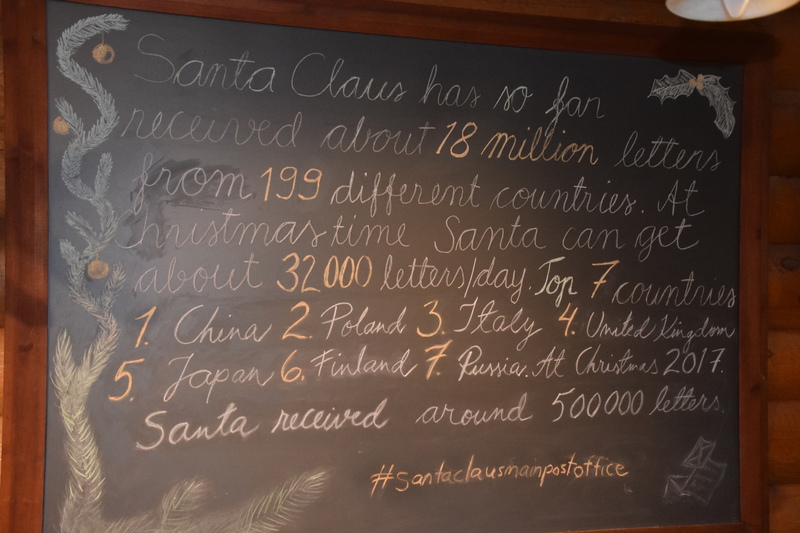 Santa Claus has so far
received about 18 million letters
from 199 different countries. At
Christmas time Santa can get
about 32 000 letters/day. Top 7 countries
1. China 2. Poland 3. Italy 4. United Kingdom
5. Japan 6. Finland 7. Russia. At Christmas 2017.
Santa received around 500 000 letters.
#santaclausmainpostoffice